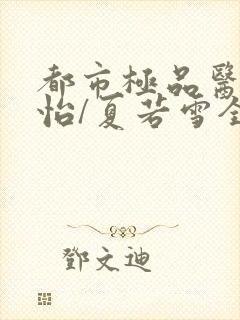 都市極品醫
怡/夏若雪全
鄧文迪